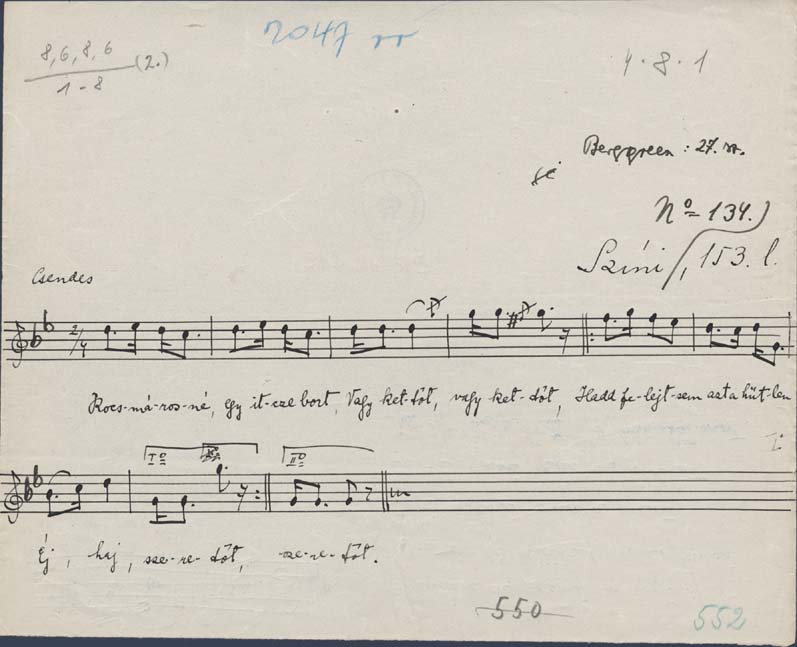 8,6,8,6 (2.)
1-8
2047
4.8.1
Berggreen: 27.
No 134.)
Színi, 153. l.
Csendes
2/4
Kocs-má-ros-né, egy it-cze bort, Vagy ket-tőt, vagy ket-tőt, Hadd fe-lejt-sem azt a hűt-len
Io IIo
Éj, haj, sze-re-tőt, sze-re-tőt.
550
552